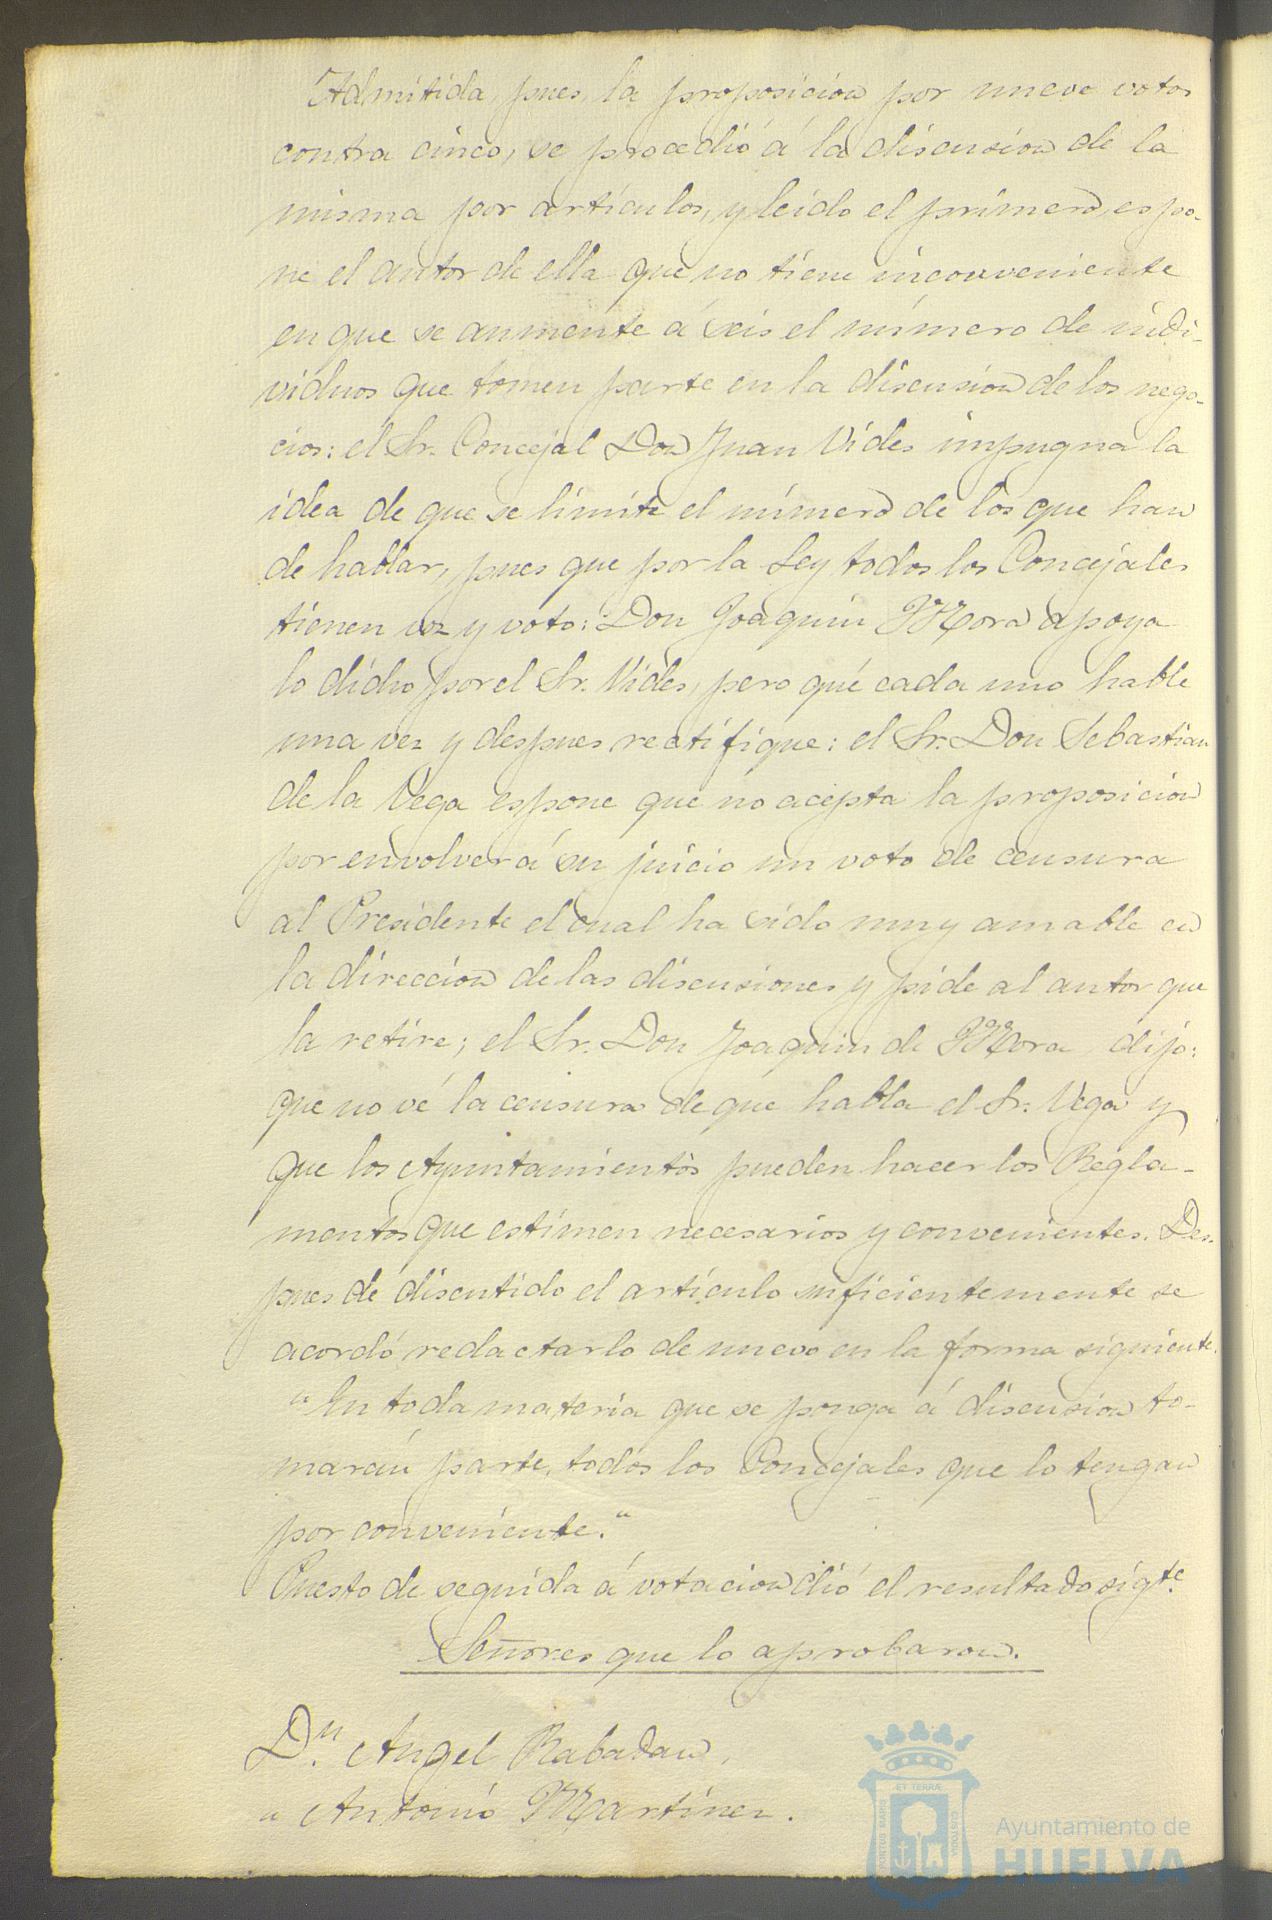 Admitida, pues, la proposicion por nueve votos
contra cinco, se procedió á la discusion de la
misma por articulos, y leido el primero, espo-
ne el autor de ella que no tiene inconveniente
en que se aumente á seis el número de indi-
viduos que tomen parte en la discusion de los nego-
cios: el Sr. Concejal Don Juan Vides impugna la
idea de que se limite el número de los que han
de hablar, pues que por la Ley todos los Concejales
tienen voz y voto: Don Joaquin Mora apoya
lo dicho por el Sr. Vides, pero qué cada uno hable
una vez y despues rectifique: el Sr. Don Sebastian
de la Vega espone que no acepta la proposicion
por envolver á su juicio un voto de censura
al Presidente el cual ha sido muy amable en
la direccion de las discusiones y pide al autor que
la retire; el Sr. Don Joaquin de Mora dijo:
que no vé la censura de que habla el Sr. Vega y
que los Ayuntamientos pueden hacer los Regla-
mentos que estimen necesarios y convenientes. Des-
pues de discutido el articulo suficientemente se
acordó redactarlo de nuevo en la forma siguiente.
"En toda materia que se ponga á discusion to-
marán parte, todos los Concejales que lo tengan
por conveniente."
Puesto de seguida á votacion dió el resultado sigte.
Señores que lo aprobaron.
Dn. Angel Rabadan,
" Antonio Martinez.
ET TERRÆ
PORTUS MARIS
CUSTODIA
Ayuntamiento de
HUELVA